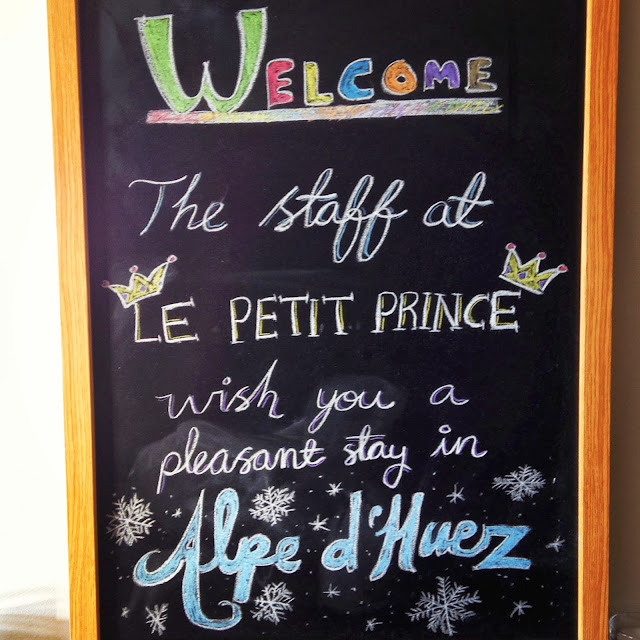 WELCOME
The staff at
LE PETIT PRINCE
wish you a
pleasant stay in
Alpe d'Huez